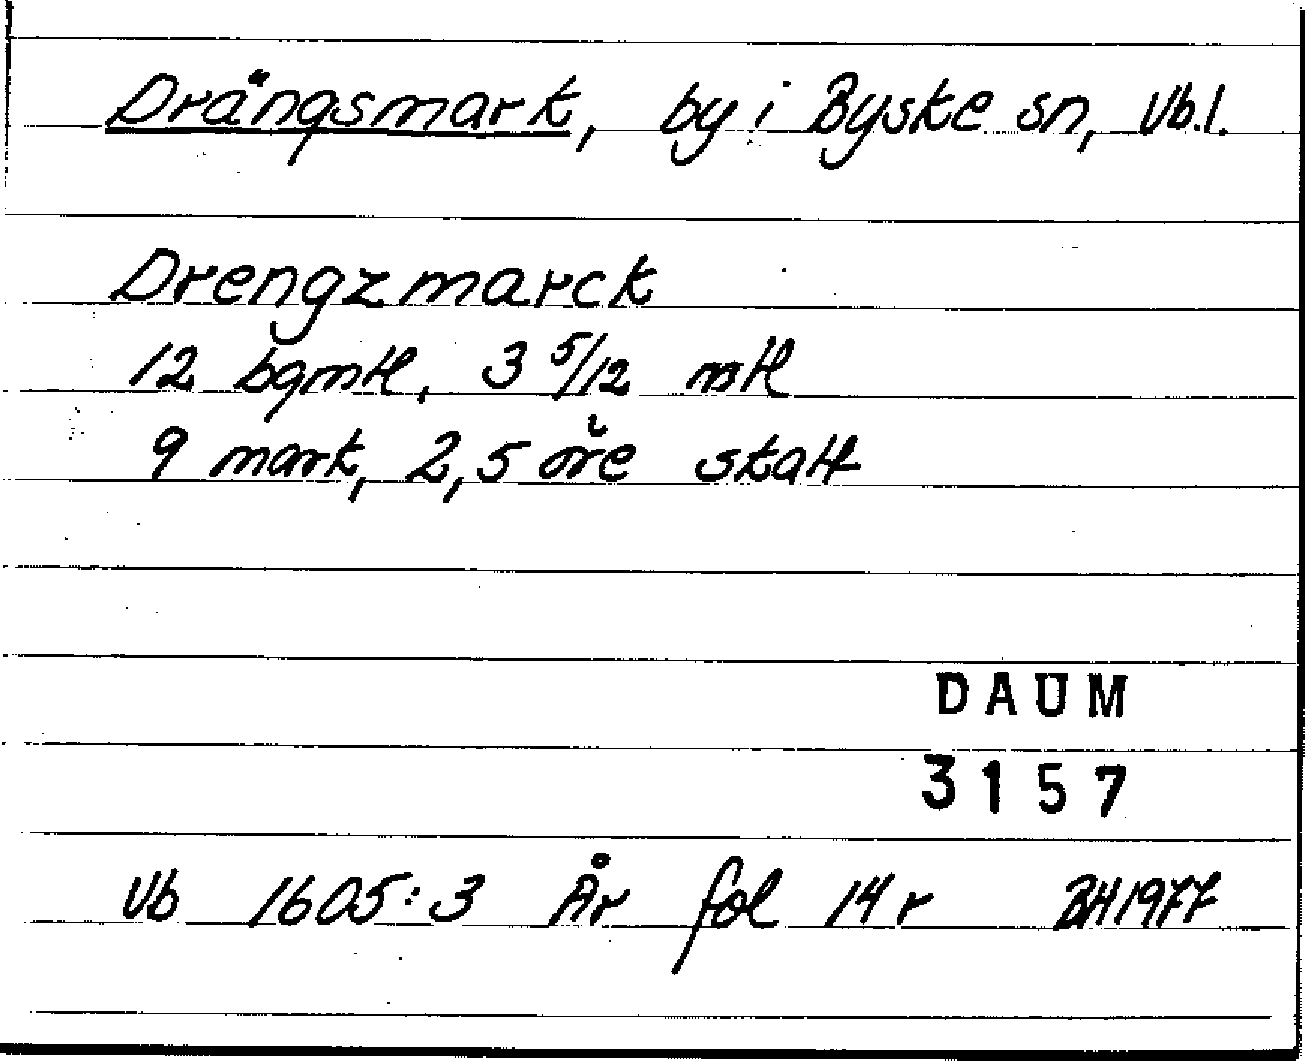 Drängsmark, by i Byske sn, Vb.l.
Drengzmarck
12 bgmtl, 3 5/12 mtl
9 mark, 2,5 öre skatt
DAUM
3157
Vb 1605:3 År fol 14 r BH 1977